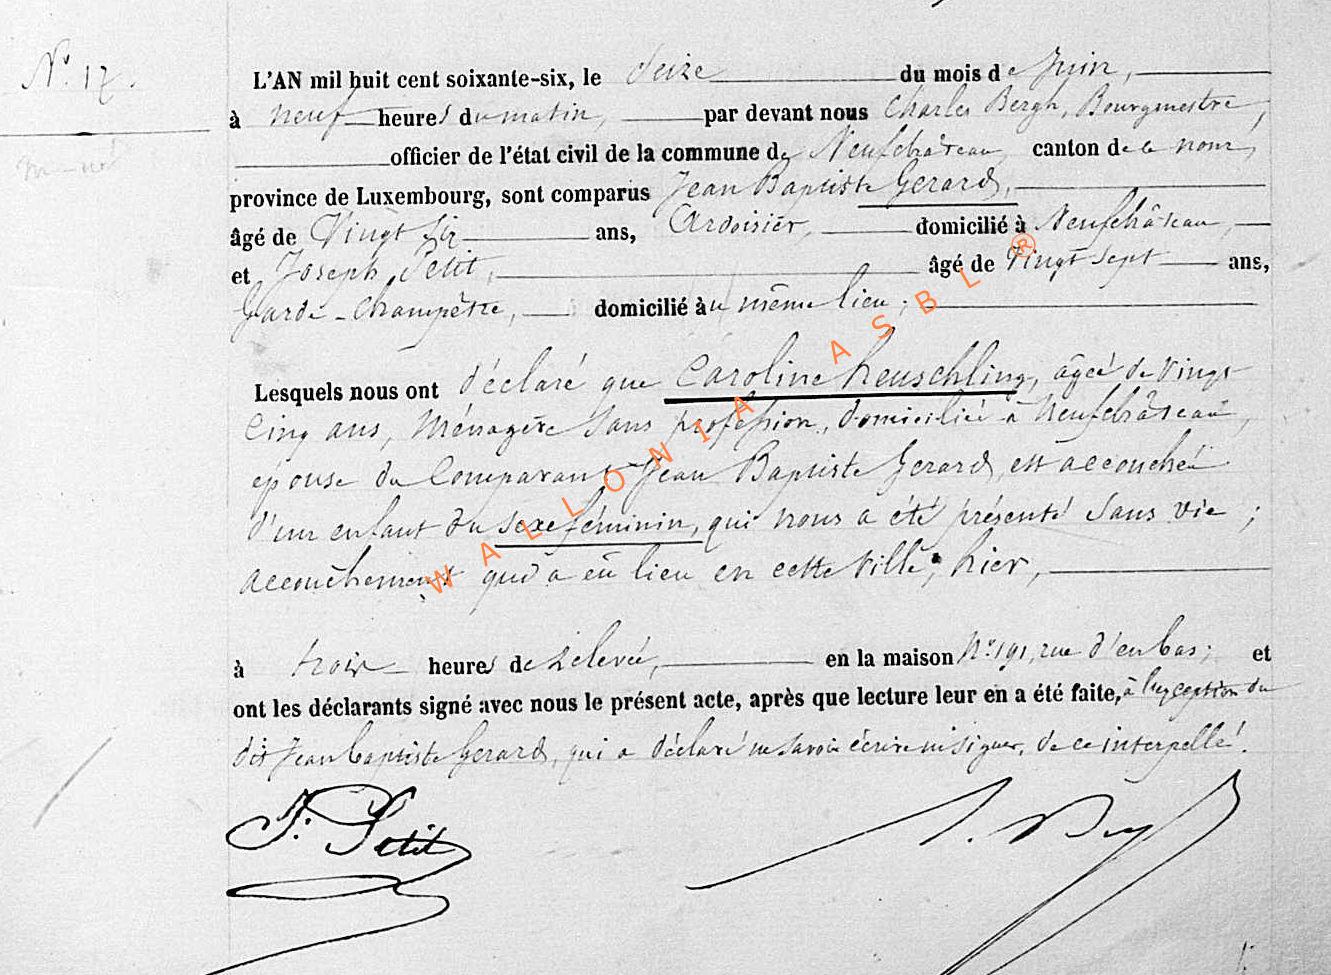 N° 17.
L'AN mil huit cent soixante-six, le Seize du mois de Juin,
à neuf heures du matin, par devant nous Charles Bergh, Bourgmestre,
officier de l'état civil de la commune de Neufchâteau, canton de ce nom,
province de Luxembourg, sont comparus Jean Baptiste Gerard,
âgé de Vingt six ans, Ardoisier, domicilié à Neufchâteau,
et Joseph Petit, âgé de Vingt sept ans,
Garde-Champêtre, domicilié au même lieu ;
Lesquels nous ont déclaré que Caroline Heuschling, âgée de Vingt
Cinq ans, Ménagère sans profession, domiciliée à Neufchâteau,
épouse du Comparant Jean Baptiste Gerard, est accouchée
d'un enfant du sexe féminin, qui nous a été présenté sans vie ;
accouchement qui a eû lieu en cette Ville, hier,
à trois heures de relevée, en la maison N° 191, rue d'en bas ; et
ont les déclarants signé avec nous le présent acte, après que lecture leur en a été faite, à l'exception du
dit Jean baptiste Gerard, qui a déclaré ne savoir écrire ni signer, de ce interpellé.
J. Petit
WALLONIA ASBL ®